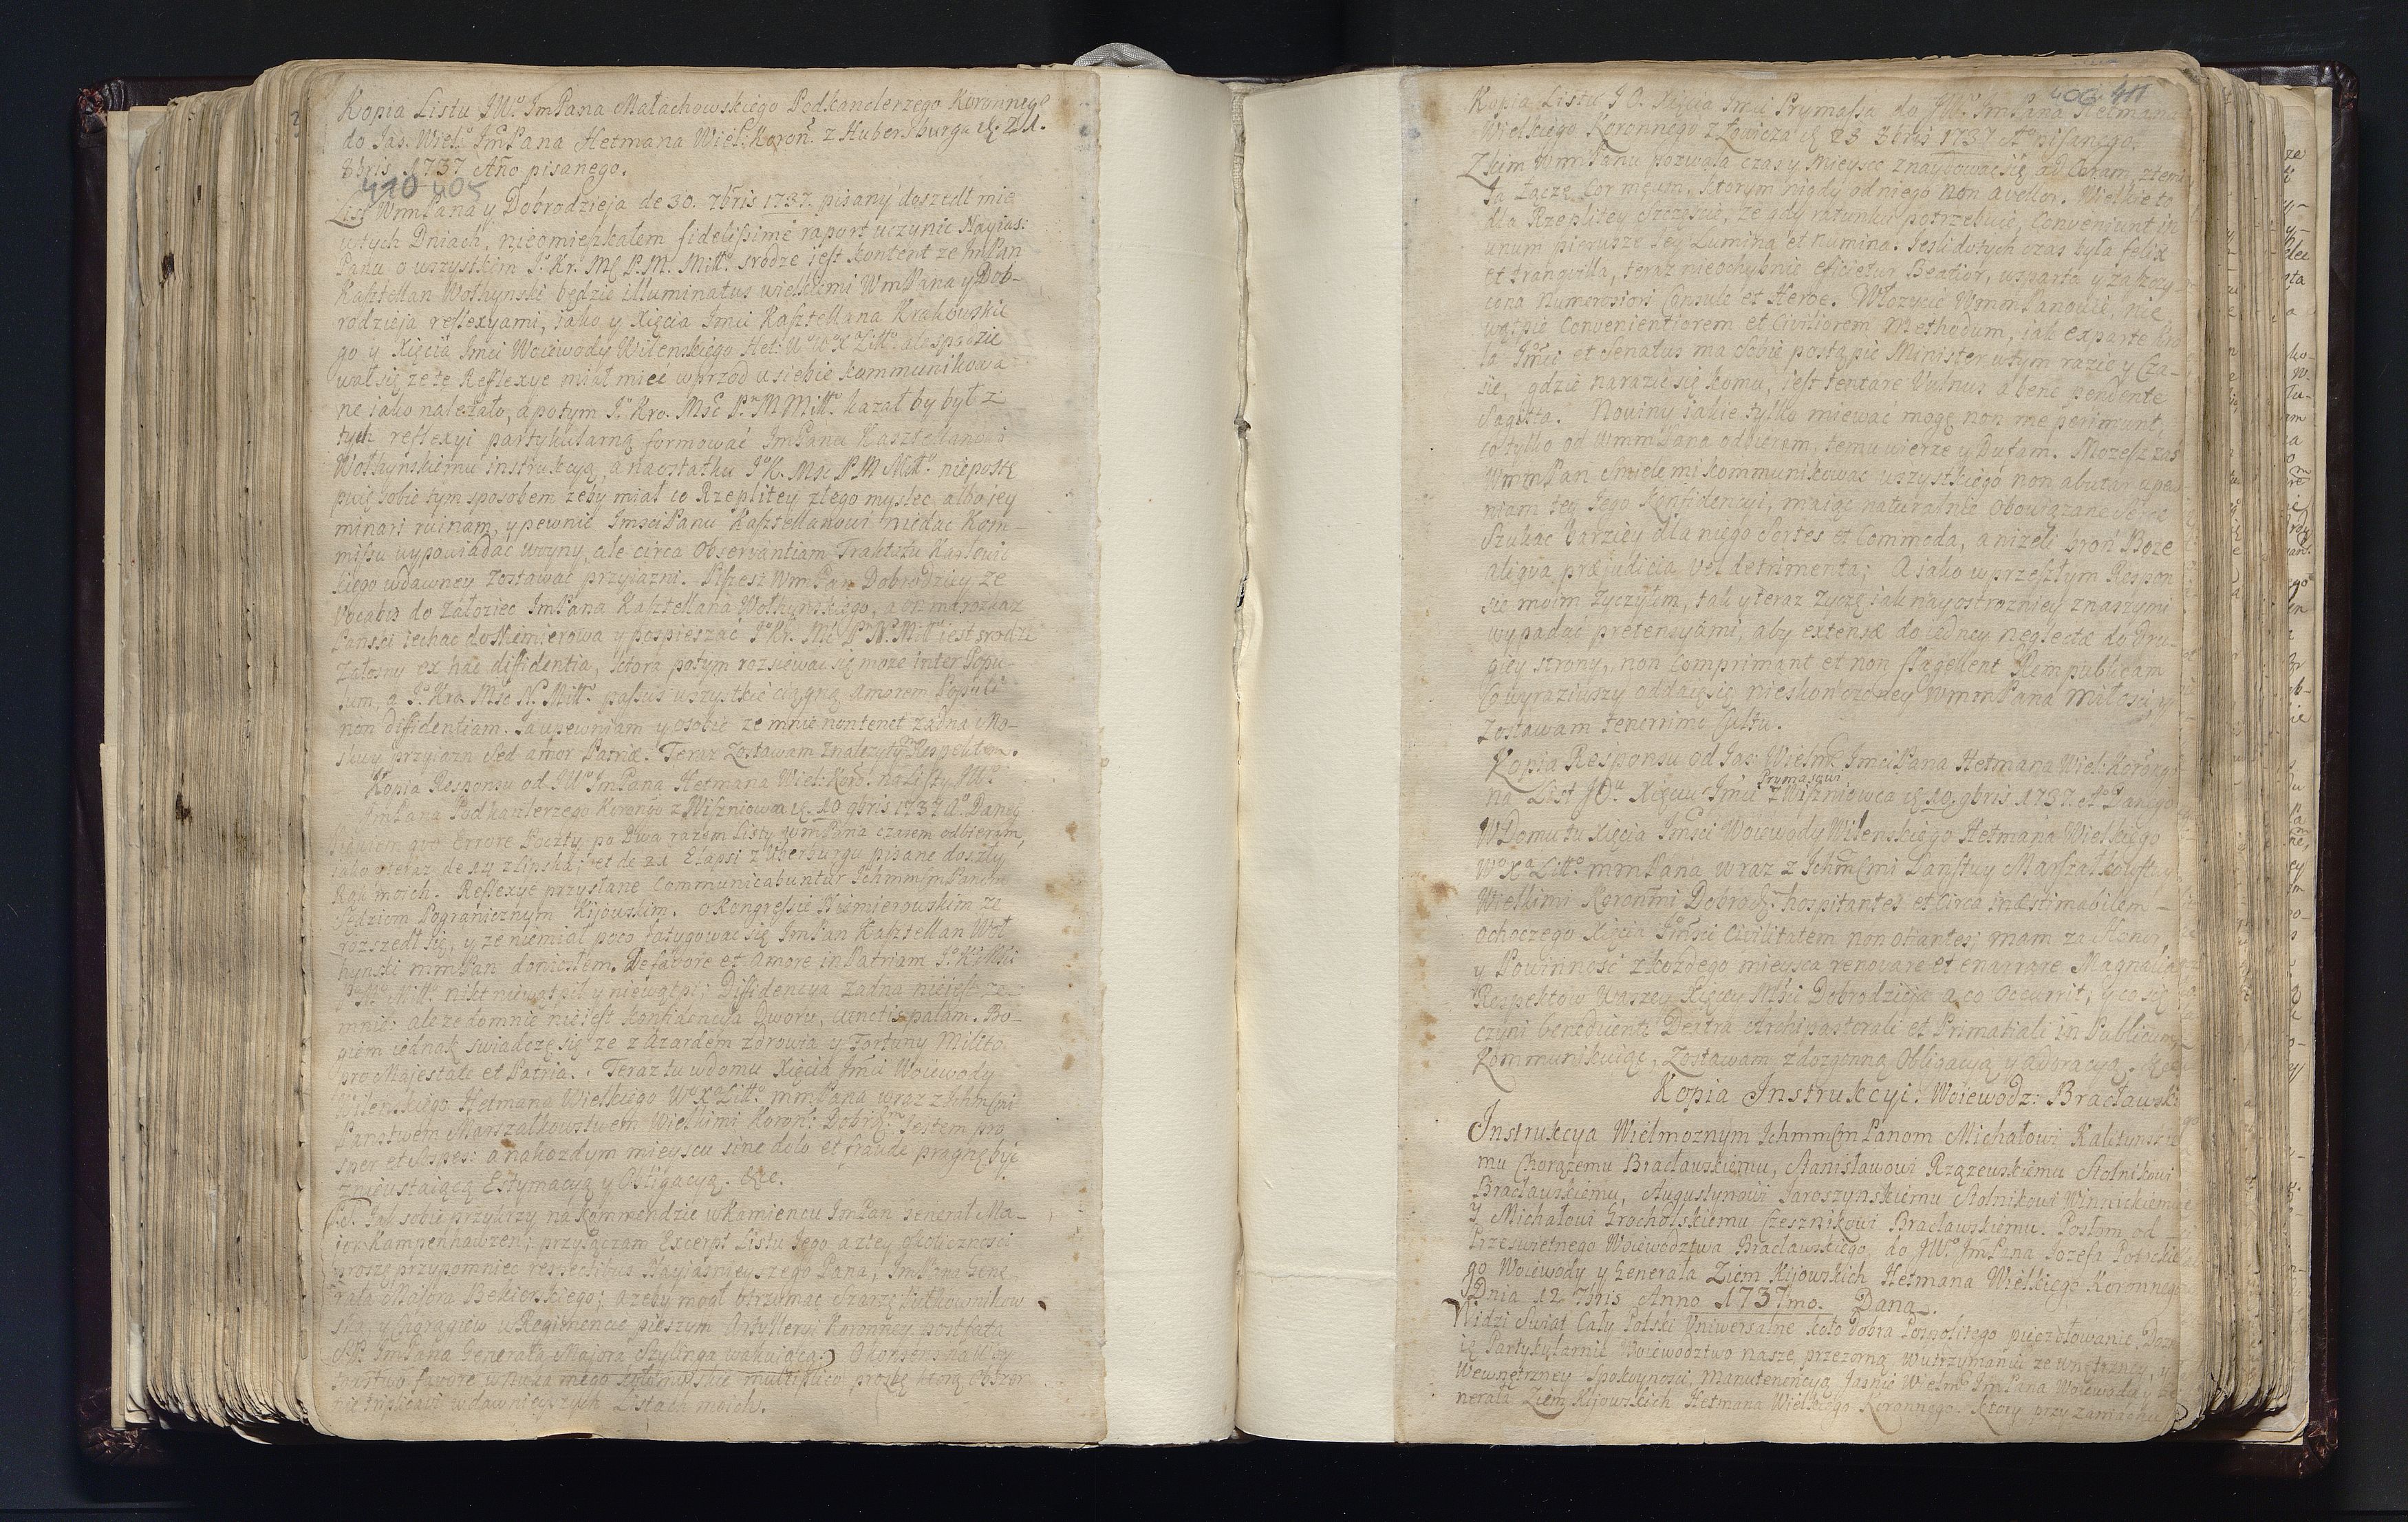 Kopia Listu JWo ImPana Małachowskiego Podkanclerzego Koronnego
do Jas. Wiel. ImPana Hetmana Wiel: Koron. z Hubersburga d. 21.
8bris 1737 Año pisanego.
410 405
List WmPana y Dobrodzieja de 30. 7bris 1737. pisany doszedł mię
wtych Dniach, nieomieszkałem fidelissime raport uczynic Nayias:
Panu o wszystkim Jo Kr. Mć P. M. Miłł. srodze iest kontent ze ImPan
Kasztellan Wołhynski będzie illuminatus wielkiemi WmPana y Dob-
rodzieja reflexyami, iako y Xięcia Imci Kasztellana Krakowskie
go y Xięcia Imci Woiewody Wilenskiego Het: W. W. X. Litt. ale spodzie
wał się ze te Reflexye miał mieć wprzod u siebie kommunikowa
ne iako nalezało, a potym Jo Kro. Msc P. M Miłł. kazał by był z
tych reflexyi partykularną formować ImPanu Kasztellanowi
Wołhynskiemu instrukcyą, a naostatku Jo K. Msc P M Miłł. niepostę
puie sobie tym sposobem zeby miał co Rzeplitey złego myslec albo jey
minari ruinam, y pewnie Imsci Panu Kasztellanowi niedać Kom-
missu wypowiadać woyny, ale circa Observantiam Traktatu Karłowic
kiego wdawney zostawać przyiazni. Piszesz WmPan Dobrodziey, ze
vocabis do Załoziec ImPana Kasztellana Wołhynskiego, a on ma rozkaz
Pansci iechac do Niemierowa y pospieszać Jo Kr. Mć P. N. Miłł iest srodze
Załosny ex hac diffidentia, ktora potym rozsiewac się moze inter Popu-
lum, a Jo Kro. Msc N. Miłł. passus wszystkie ciągną amorem Populi
non diffidentiam. Ia upewniam y osobie ze mnie non tenet zadna Mo-
skwy przyiazn sed amor Patriæ. Teraz Zostawam Znalezytym Respektem.
Kopia Responsu od JWo ImPana Hetmana Wiel: Koro. na Listy JWo
ImPana Podkanclerzego Korongo z Wiszniowca d. 10 9bris 1737 Ao Dany
errore Poczty po Dwa razem Listy WmPana czasem odbieram,
iako y teraz de 14 z Lipska, et de 21 Elapsi z Uberburgu pisane doszły
Rąk moich. Reflexye przysłane Communicabuntur Ichmm Panom
Sędziom Pogranicznym Kijowskim. O Kongressie Niemierowskim ze
rozszedł się, y ze niemiał poco fatygowac się ImPan Kasztellan Woł
hynski mmPan doniosłem. De favore et Amore in Patriam Jo K Msci
Miłło nikt niewątpił y niewątpi; Diffidencya zadna nieiest ze-
mnie: ale ze do mnie nie iest konfidencya Dworu, cunctis palam. Bo-
giem iednak swiadczę się ze z Azardem zdrowia y Fortuny Milito
pro Majestate et Patria. Teraz tu wdomu Xięcia Imci Woiewody
Wilenskiego Hetmana Wielkiego W. X. Litt. mmPana wraz z Ichm
Panstwem Marszałkowstwem Wielkimi Koron: Dobrdz. Iestem pro
sper et Sospes: a nakozdym mieyscu sine dolo et fraude pragnę być
znieustaiącą Estymacyą y Obligacyą. &c.
P.S. Iak sobie przykrzy na Kommendzie wKamiencu ImPan Generał Ma-
ior Kampenhawzen; przyłączam Excerpt Listu Jego, a ztey okolicznosci
proszę przypomniec respectibus Nayiasnieyszego Pana, ImPana Gene
rała Maiora Bekierskiego; azeby mogł otrzymac Szarzę Pułkownikow
ską y Chorągiew w Regimencie pieszym Artylleryi Koronney post fata
SP. ImPana Generała Majora Szylinga wakuiącą. O konsens na Woy
tostwo favore wnuka mego multiplico prosbę ktorą obszer
nie wdawnieyszych Listach moich.
406 411
Kopia Listu J O. Xięcia Imci Prymassa do JWo ImPana Hetmana
Wielkiego Koronnego z Łowicza d. 23 8bris 1737 Ao pisanego.
Z kim WmPanu pozwala czas y mieysce znaydować się ad Coram, ztemi
Ia Łączę Cor meum, ktorym nigdy od niego non avellor. Wielkie to
dla Rzeplitey Szczęscie, ze gdy ratunku potrzebuie, Conveniunt in
unum pierwsze Jey Lumina et Numina. Iesli dotych czas była felix
et tranquilla, teraz nieochybnie efficietur Beatior, wsparta y zaszczy
cona Numerosiori Consule et Heroe. Włozycie WmmPanowie, nie
wątpię Convenientiorem et Civiliorem Methodum, iak ex parte Kro
la Imci et Senatus ma Sobie postąpic Minister wtym razie y Cza-
sie, gdzie narazić się komu, iest tentare Vulnus a bene pendente
Sagitta. Nowiny iakie tylko miewać mogę non me perimunt,
co tylko od WmmPana odbieram, temu wierzę y Dufam. Mozesz zaś
WmmPan Smiele mi kommunikować wszystkiego non abutar upew
niam tey Jego Konfidencyi, maiąc naturalnie Obowiązane Serce
Szukac barziey dla niego Sortes et Commoda, a nizeli broń Boze
aliqua præjudicia vel detrimenta; A jako wprzeszłym Respon
sie moim zyczyłem, tak y teraz zyczę iak nayostrozniey znaszymi
wypadać pretensyami, aby extensæ do iedney neglectæ do Dru-
giey strony, non Comprimant et non flagellent Rempublicam
Co wyraziwszy oddaię się nieskończoney WmmPana Miłosci, y
Zostawam tenerrimo Cultu.
Kopia Responsu od Jas: Wielm. ImciPana Hetmana Wiel: Korong.
na List JOu Xięciu Imci Prymasowi z Wiszniowca d. 10. 9bris 1737. Ao Danego
WDomu tu Xięcia Imsci Woiewody Wilenskiego Hetmana Wielkiego
Wo Xa Litto mmPana wraz z Ichm Panstwy Marszałkowstwy
Wielkimi Koronmi Dobrodz: hospitantes et Circa inæstimabilem
ochoczego Xięcia Imsci Civilitatem non otiantes; mam za Honor,
y Powinność z kozdego mieysca renovare et enarrare Magnalia
Respektow Waszey Xięcey Msci Dobrodzieja a co Occurrit, y co się
czyni benedicenti Dextra Archipastorali et Primatiali in Publicum
Kommunikuię, Zostawam z dozgonną Obligacyą y adoracyą. &c.
Kopia Instrukcyi: Woiewodz: Bracławski
Instrukcya Wielmoznym Ichmm Panom Michałowi Kalitynskie
mu Chorązemu Bracławskiemu, Stanisławowi Rzązewskiemu Stolnikowi
Bracławskiemu, Augustynowi Jaroszynskiemu Stolnikowi Winnickiemu
y Michałowi Grocholskiemu Czesznikowi Bracławskiemu. Posłom od
Przeswietnego Woiewodztwa Bracławskiego do JWo ImPana Jozefa Potockie
go Woiewody y Generała Ziem Kijowskich Hetmana Wielkiego Koronnego
Dnia 12 7bris Anno 1737mo. Dana.
Widzi Swiat Cały Polski Uniwersalne koło Dobra Pospolitego pieczołowanie, Dozn
ie Partykylarnie Woiewodztwo nasze przezorną wutrzymaniu zewnętrzney, y
Wewnętrzney Spokoynosci, Manutenencyą Jasnie Wielm. ImPana Woiewody y Ge
nerała Ziem Kijowskich Hetmana Wielkiego Koronnego. Ktory przy zamachu